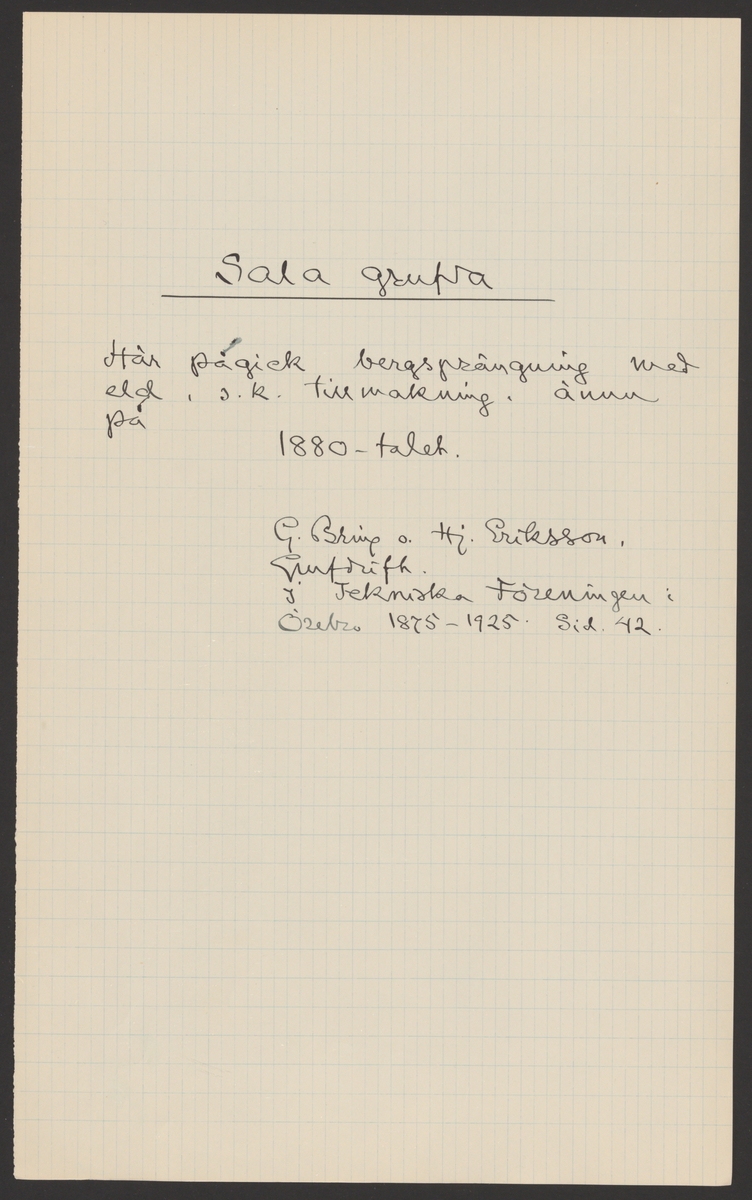 Sala grufva
Här pågick bergsprängning med
eld, s.k. tillmakning, ännu
på
1880-talet.
G. Bring o. Hj. Eriksson,
Grufdrift.
I Tekniska Föreningen i
Örebro 1875-1925. Sid. 42.